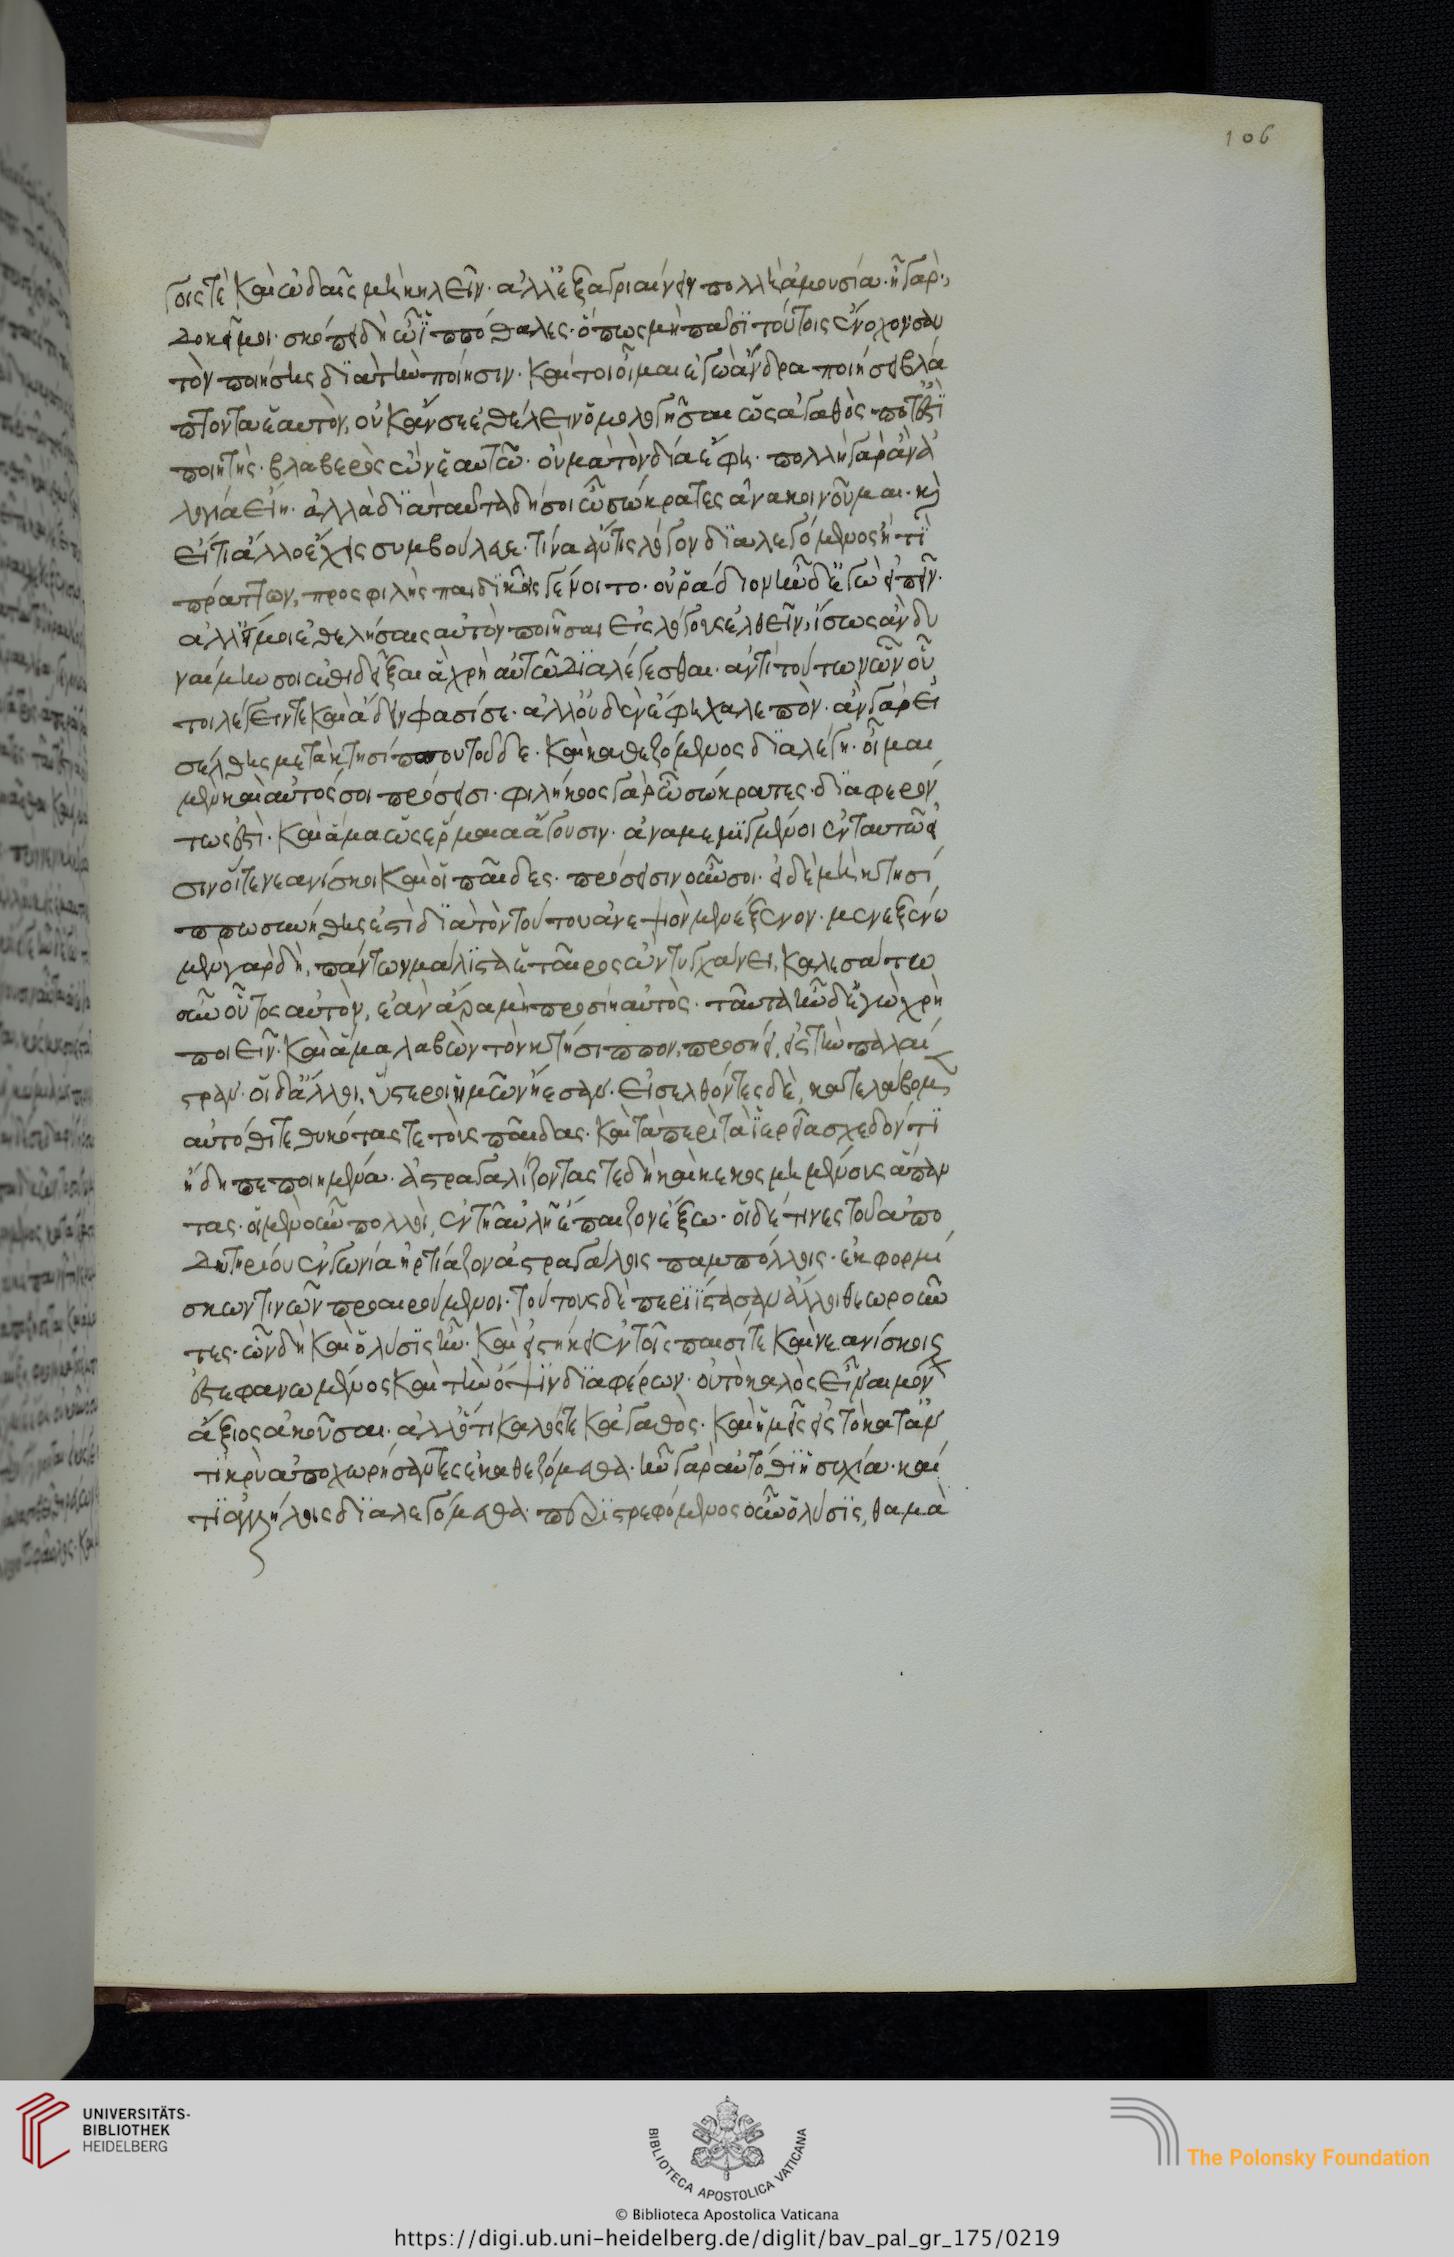 106
γοις τὲ καὶ ὠδαῖς μὴ κηλεῖν· ἀλλ' ἐξαγριαίνειν πολλὴ ἀμουσία· ἦ γάρ;
δοκεῖ μοι· σκόπει δὴ ὦ ἱππόθαλες· ὅπως μὴ πᾶσι τούτοις ἔνοχον σαυ
τὸν ποιήσῃς διὰ τὴν ποίησιν· καίτοι οἶμαι ἐγὼ ἄνδρα ποιήσει βλά
πτοντα ἑαυτὸν, οὐκ ἄν σε ἐθέλειν ὁμολογῆσαι ὡς ἀγαθὸς ποτ' ἐστὶ
ποιητὴς· βλαβερὸς ὢν ἑαυτῶ· οὐ μὰ τὸν δία ἔφη· πολλὴ γὰρ ἂν ἀ
λογία εἴη· ἀλλὰ διὰ ταῦτα δή σοι ὦ σώκρατες ἀνακοινοῦμαι· καὶ
εἴ τι ἄλλο ἔχεις συμβούλευε· τίνα ἄν τις λόγον διαλεγόμενος ἢ τὶ
πράττων, προσφιλὴς παιδικοῖς γένοιτο· οὐ ῥάδιον ἦν δ' ἐγὼ εἰπεῖν·
ἀλλ' εἴ μοι ἐθελήσαις αὐτὸν ποιῆσαι εἰς λόγους ἐλθεῖν, ἴσως ἂν δυ
ναίμην σοι ἐπιδεῖξαι ἃ χρὴ αὐτῶ διαλέγεσθαι· ἀντὶ τούτων ὧν οὗ
τοι λέγειν τε καὶ ἄδειν φασί σε· ἀλλ' οὐδὲν ἔφη χαλεπὸν· ἂν γὰρ εἰ
σέλθῃς μετὰ κτησίππου τοῦδε· καὶ καθεζόμενος διαλέγῃ· οἶμαι
μὲν καὶ αὐτός σοι πρόσεισι· φιλήκοος γὰρ ὦ σώκρατες· διαφερόν
τως ἐστὶ· καὶ ἅμα ὡς ἑρμαῖα ἄγουσιν· ἀναμεμιγμένοι ἐν ταυτῶ εἰ
σιν οἵ τε νεανίσκοι καὶ οἱ παῖδες· πρόσεισιν οὖν σοι· εἰ δὲ μὴ κτησί
ππω συνήθης ἐστὶ διὰ τὸν τούτου ἀνεψιὸν μενέξενον· μενεξένω
μὲν γὰρ δὴ, πάντων μάλιστα ἑταῖρος ὢν τυγχάνει, καλεσάτω
οὖν οὗτος αὐτὸν, ἐὰν ἄρα μὴ προσίῃ αὐτὸς· ταῦτα ἦν δ' ἐγὼ χρὴ
ποιεῖν· καὶ ἅμα λαβὼν τὸν κτήσιππον, προσῄει εἰς τὴν παλαί
στραν· οἱ δ' ἄλλοι, ὕστεροι ἡμῶν ᾔεσαν· εἰσελθόντες δὲ, κατελάβομεν
αὐτόθι τεθυκότας τε τοὺς παῖδας· καὶ τὰ περὶ τὰ ἱερεῖα σχεδόν τι
ἤδη πεποιημένα· ἀστραγαλίζοντας τε δὴ καὶ κεκοσμημένους ἅπαν
τας· οἱ μὲν οὖν πολλοὶ, ἐν τῇ αὐλῇ ἔπαιζον ἔξω· οἱ δέ τινες τοῦ ἀπο
δυτηρίου ἐν γωνία ἠρτίαζον ἀστραγάλοις παμπόλλοις· ἐκ φορμί
σκων τινῶν προαιρούμενοι· τούτους δὲ περιίστασαν ἄλλοι θεωροῦν
τες· ὧν δὴ καὶ ὁ λύσις ἦν· καὶ εἱστήκει ἐν τοῖς παισί τε καὶ νεανίσκοις
ἐστεφανωμένος καὶ τὴν ὄψιν διαφέρων· οὐ τὸ καλὸς εἶναι μόνον
ἄξιος ἀκοῦσαι· ἀλλ' ὅτι καλός τε κἀγαθὸς· καὶ ἡμεῖς εἰς τὸ καταν
τικρὺ ἀποχωρήσαντες ἐκαθεζόμεθα· ἦν γὰρ αὐτόθι ἡσυχία· καί
τι ἀλλήλοις διαλεγόμεθα· περιστρεφόμενος οὖν ὁ λύσις, θαμὰ
UNIVERSITÄTS-
BIBLIOTHEK
HEIDELBERG
BIBLIOTECA APOSTOLICA VATICANA
The Polonsky Foundation
© Biblioteca Apostolica Vaticana
https://digi.ub.uni-heidelberg.de/diglit/bav_pal_gr_175/0219